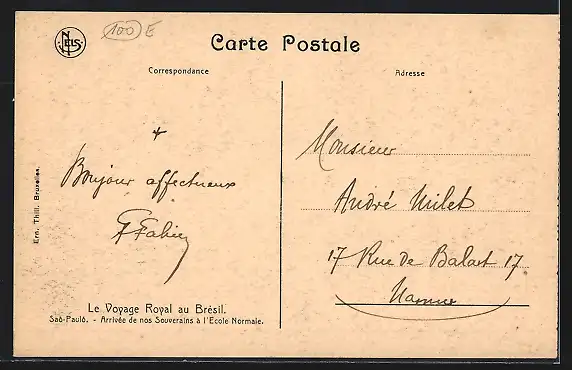 NELS
100 E
Carte Postale
Correspondance
Adresse
Bonjour affectueux
Ern. Thill. Bruxelles.
Le Voyage Royal au Brésil.
Saô-Paulô. - Arrivée de nos Souverains à l'Ecole Normale.
Monsieur
André Milet
17 Rue De Balart 17
Namur